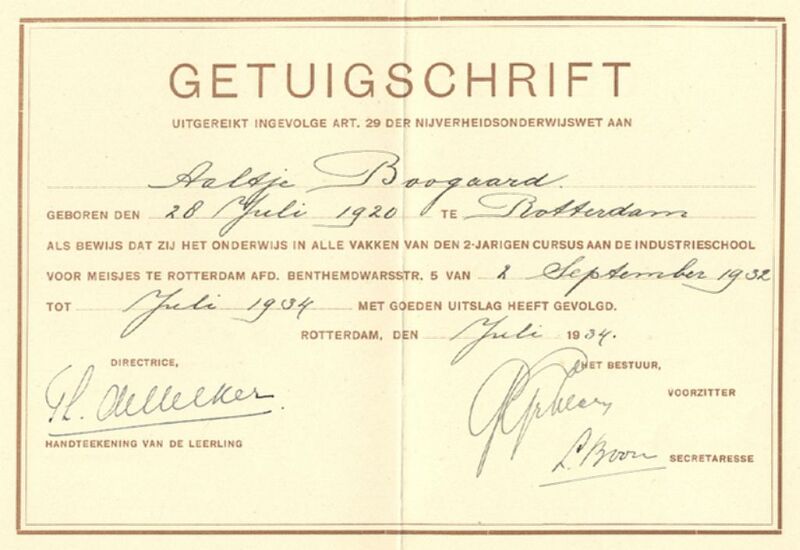 GETUIGSCHRIFT
UITGEREIKT INGEVOLGE ART. 29 DER NIJVERHEIDSONDERWIJSWET AAN
Aaltje Boogaard.
GEBOREN DEN 28 Juli 1920 TE Rotterdam
ALS BEWIJS DAT ZIJ HET ONDERWIJS IN ALLE VAKKEN VAN DEN 2-JARIGEN CURSUS AAN DE INDUSTRIESCHOOL
VOOR MEISJES TE ROTTERDAM AFD. BENTHEMDWARSSTR. 5 VAN 2 September 1932
TOT Juli 1934 MET GOEDEN UITSLAG HEEFT GEVOLGD.
ROTTERDAM, DEN Juli 1934.
DIRECTRICE,
HET BESTUUR,
VOORZITTER
Th.
HANDTEEKENING VAN DE LEERLING
L. Boon SECRETARESSE